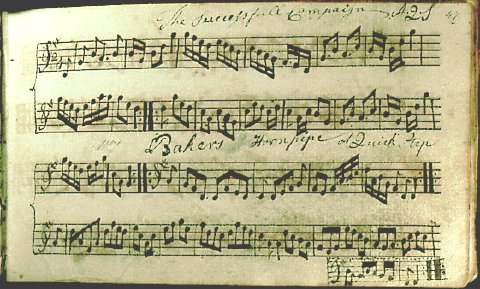 The Successfull Campaign
Bakers Hornpipe or Quick Step